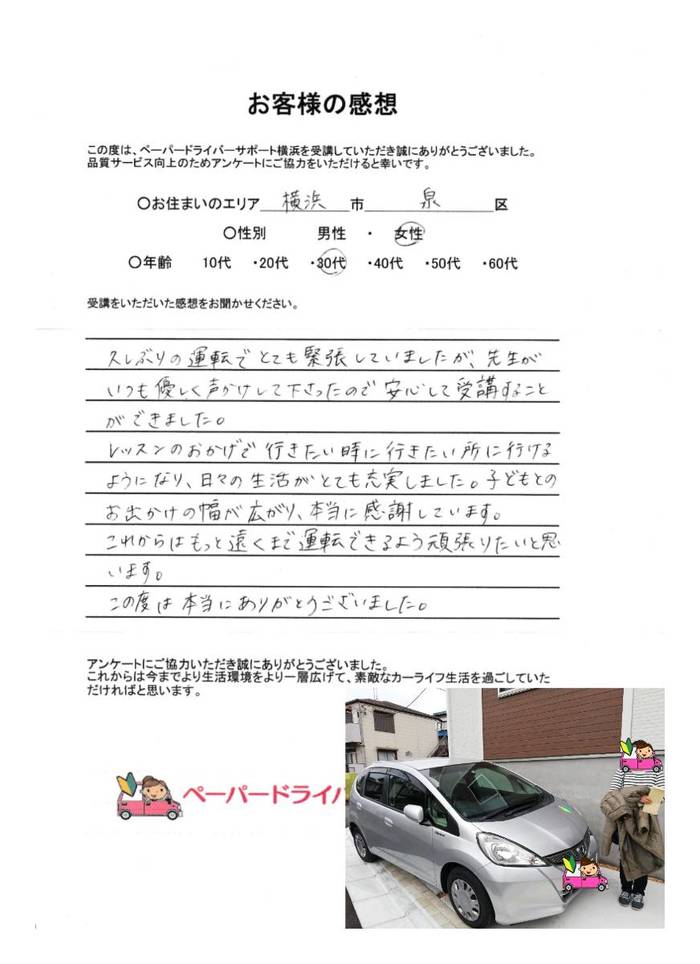 お客様の感想
この度は、ペーパードライバーサポート横浜を受講していただき誠にありがとうございました。
品質サービス向上のためアンケートにご協力をいただけると幸いです。
〇お住まいのエリア 横浜 市 泉 区
〇性別 男性 ・ 女性
〇年齢 10代 ・20代 ・30代 ・40代 ・50代 ・60代
受講をいただいた感想をお聞かせください。
久しぶりの運転でとても緊張していましたが、先生が
いつも優しく声かけして下さったので安心して受講すること
ができました。
レッスンのおかげで行きたい時に行きたい所に行ける
ようになり、日々の生活がとても充実しました。子どもとの
お出かけの幅が広がり、本当に感謝しています。
これからはもっと遠くまで運転できるよう頑張りたいと思
います。
この度は本当にありがとうございました。
アンケートにご協力いただき誠にありがとうございました。
これからは今までより生活環境をより一層広げて、素敵なカーライフ生活を過ごしていた
だければと思います。
ペーパードライバ